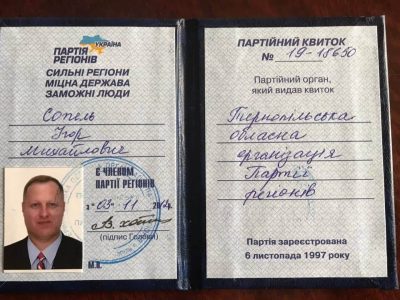 УКРАЇНА
ПАРТІЯ
РЕГІОНІВ
СИЛЬНІ РЕГІОНИ
МІЦНА ДЕРЖАВА
ЗАМОЖНІ ЛЮДИ
Сопель
Ігор
Михайлович
Є ЧЛЕНОМ
ПАРТІЇ РЕГІОНІВ
з "03" 11
(підпис Голови)
М.П.
ПАРТІЙНИЙ КВИТОК
№ 19-18650
Партійний орган,
який видав квиток
Тернопільська
обласна
організація
Партії
регіонів
Партія зареєстрована
6 листопада 1997 року